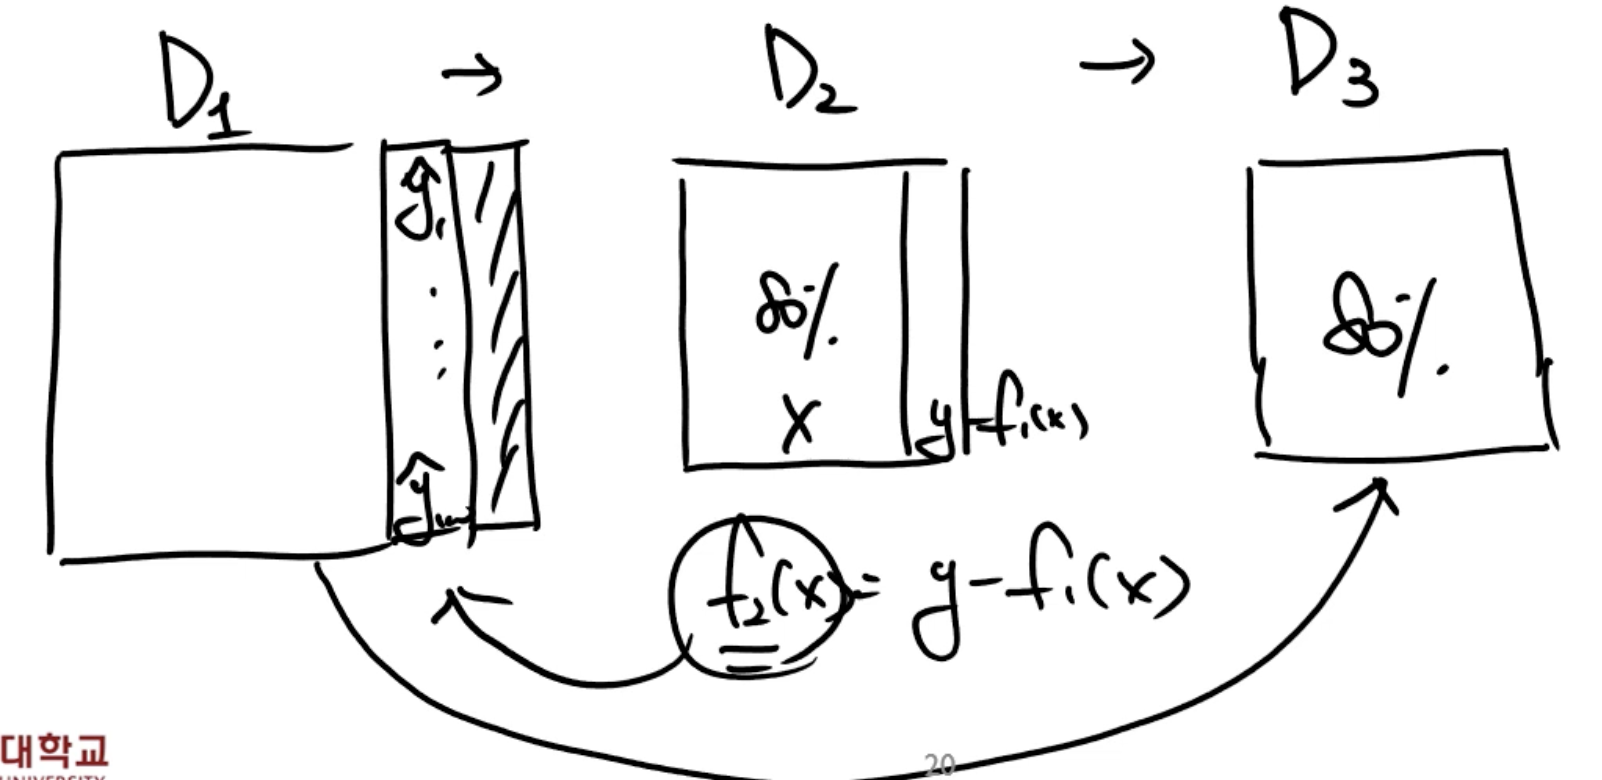 D₁ → D₂ → D₃
ŷ₁
⋮
80%
80%
X
y - f₁(x)
ŷ
f₂(x) = y - f₁(x)
대학교
UNIVERSITY
20